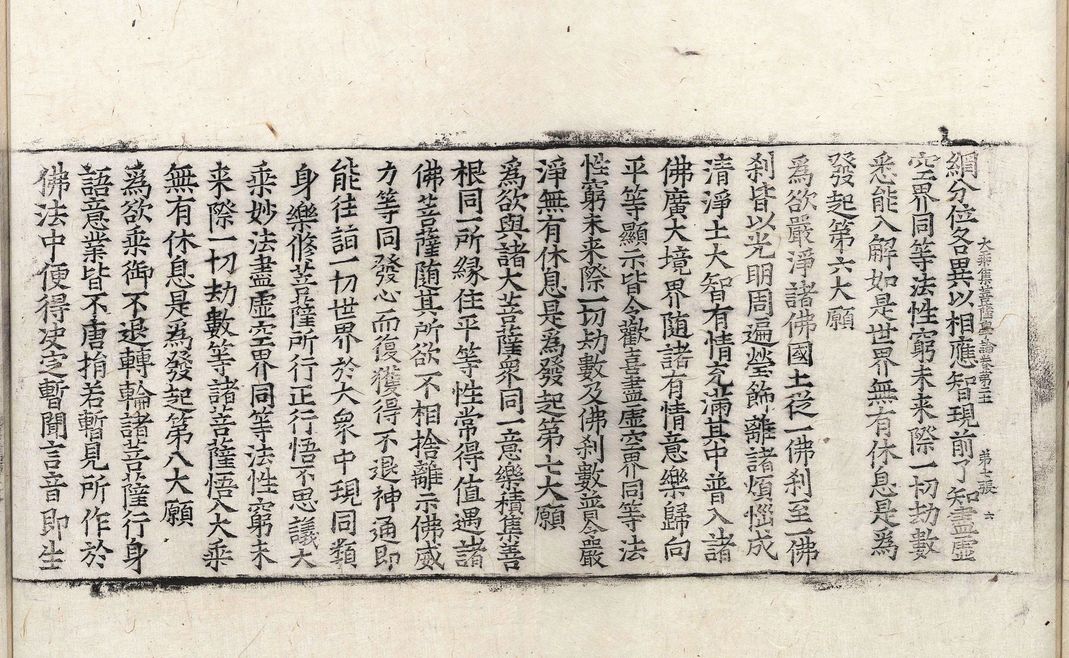 網分位各異以相應智現前了知盡虛
大乘集菩薩學論卷第三 第七張 六
空界同等法性窮未来際一切劫數
悉能入解如是世界無有休息是為
發起第六大願
為欲嚴淨諸佛國土從一佛刹至一佛
刹皆以光明周遍瑩飾離諸煩惱成
清淨土大智有情充滿其中普入諸
佛廣大境界随諸有情意樂歸向
平等顯示皆令歡喜盡虛空界同等法
性窮未来際一切劫數及佛刹數普令嚴
淨無有休息是為發起第七大願
為欲與諸大菩薩衆同一意樂積集善
根同一所緣住平等性常得值遇諸
佛菩薩随其所欲不相捨離示佛威
力等同發心而復獲得不退神通即
能往詣一切世界於大衆中現同類
身樂修菩薩所行正行悟不思議大
乘妙法盡虛空界同等法性窮未
来際一切劫數等諸菩薩悟入大乘
無有休息是為發起第八大願
為欲乘御不退轉輪諸菩薩行身
語意業皆不唐捐若暫見所作於
佛法中便得决定暫聞言音即生